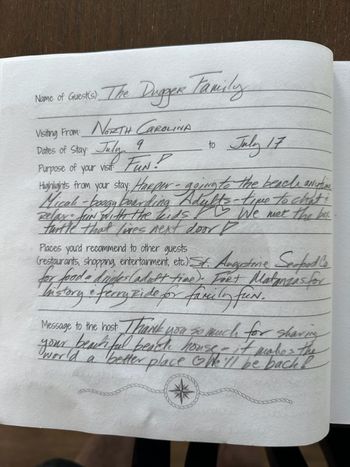 Name of Guest(s) The Dugger Family
Visiting From: North Carolina
Dates of Stay: July 9 to July 17
Purpose of your visit Fun!
Highlights from your stay Harper - going to the beach anytime
Micah - boogy boarding Adults - time to chat &
relax & fun with the kids! We met the box
turtle that lives next door!
Places you'd recommend to other guests
(restaurants, shopping, entertainment, etc.) St. Augustine Seafood Co
for food & drinks (adult time). Fort Matanzas for
history & ferry ride for family fun.
Message to the host Thank you so much for sharing
your beautiful beach house - it makes the
world a better place ♡ We'll be back!